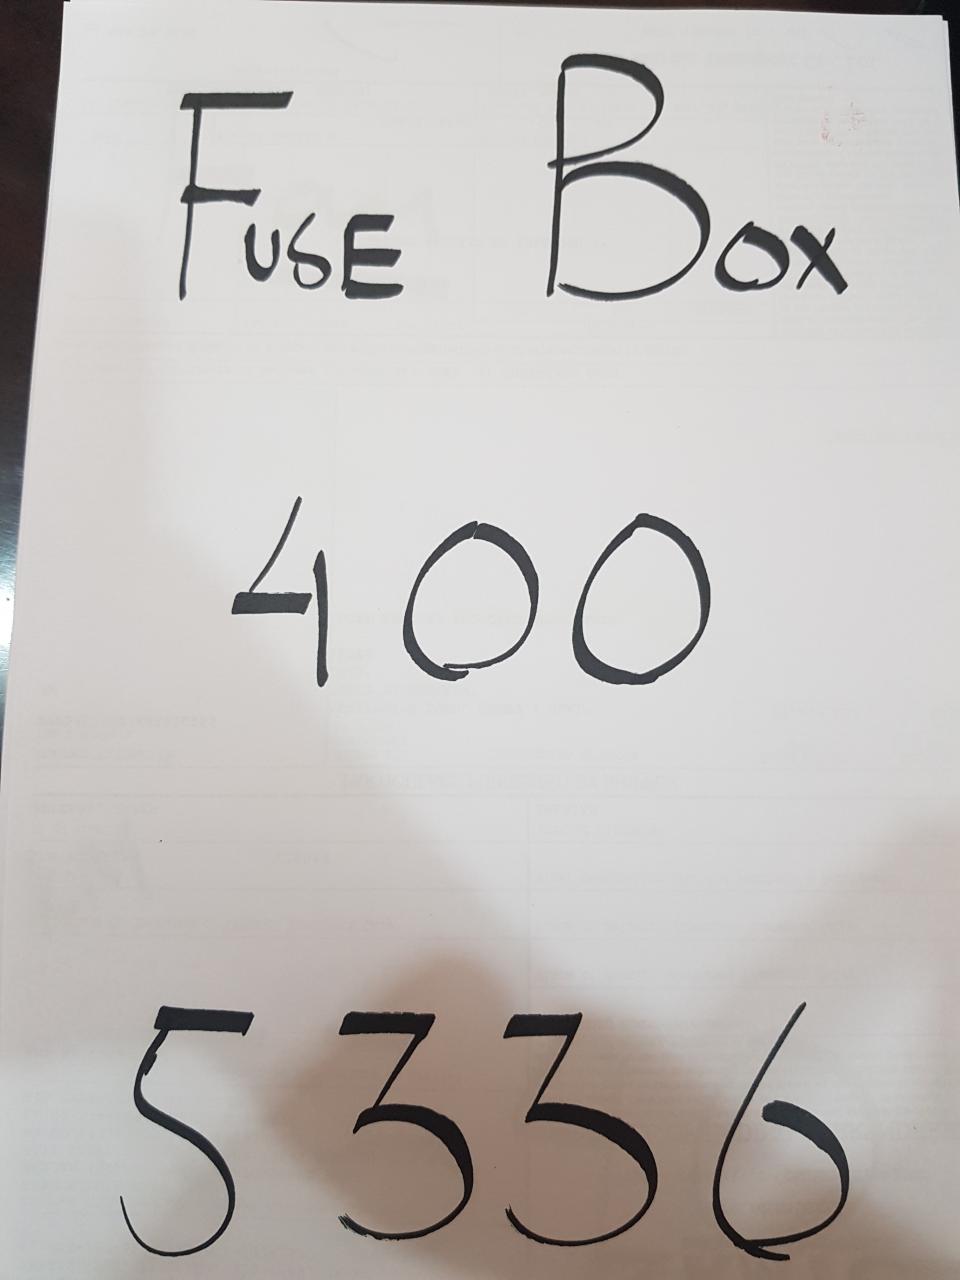 Fuse Box
400
5336